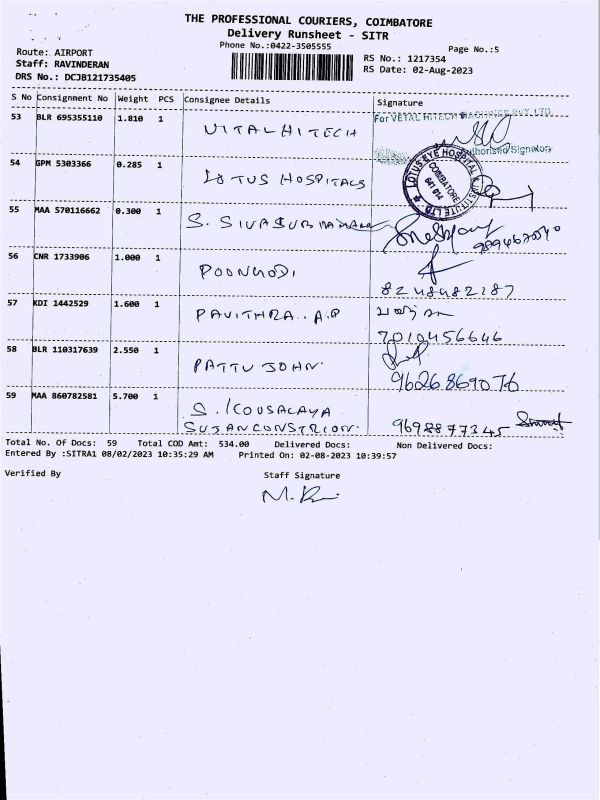 THE PROFESSIONAL COURIERS, COIMBATORE
Delivery Runsheet - SITR
Phone No.:0422-3505555
Page No.:5
Route: AIRPORT
Staff: RAVINDERAN
DRS No.: DCJB121735405
RS No.: 1217354
RS Date: 02-Aug-2023
S No Consignment No Weight PCS Consignee Details Signature
53 BLR 695355110 1.810 1 VITAL HITECH
For VETAL HITECH MACHINES PVT. LTD.
Authorised Signatory
54 GPM 5303366 0.285 1 LOTUS HOSPITALS
LOTUS EYE HOSPITAL & INSTITUTE LTD.
COIMBATORE
641 014
55 MAA 570116662 0.300 1 S. SIVASUBRAMANI
56 CNR 1733906 1.000 1 POONGODI
8248482187
57 KDI 1442529 1.600 1 PAVITHRA. A.P
7010456646
58 BLR 110317639 2.550 1 PATTU JOHN
9626869076
59 MAA 860782581 5.700 1 S. KOUSALAYA
SUJANCONSTRION.
9698877345
Total No. Of Docs: 59 Total COD Amt: 534.00 Delivered Docs: Non Delivered Docs:
Entered By :SITRA1 08/02/2023 10:35:29 AM Printed On: 02-08-2023 10:39:57
Verified By Staff Signature